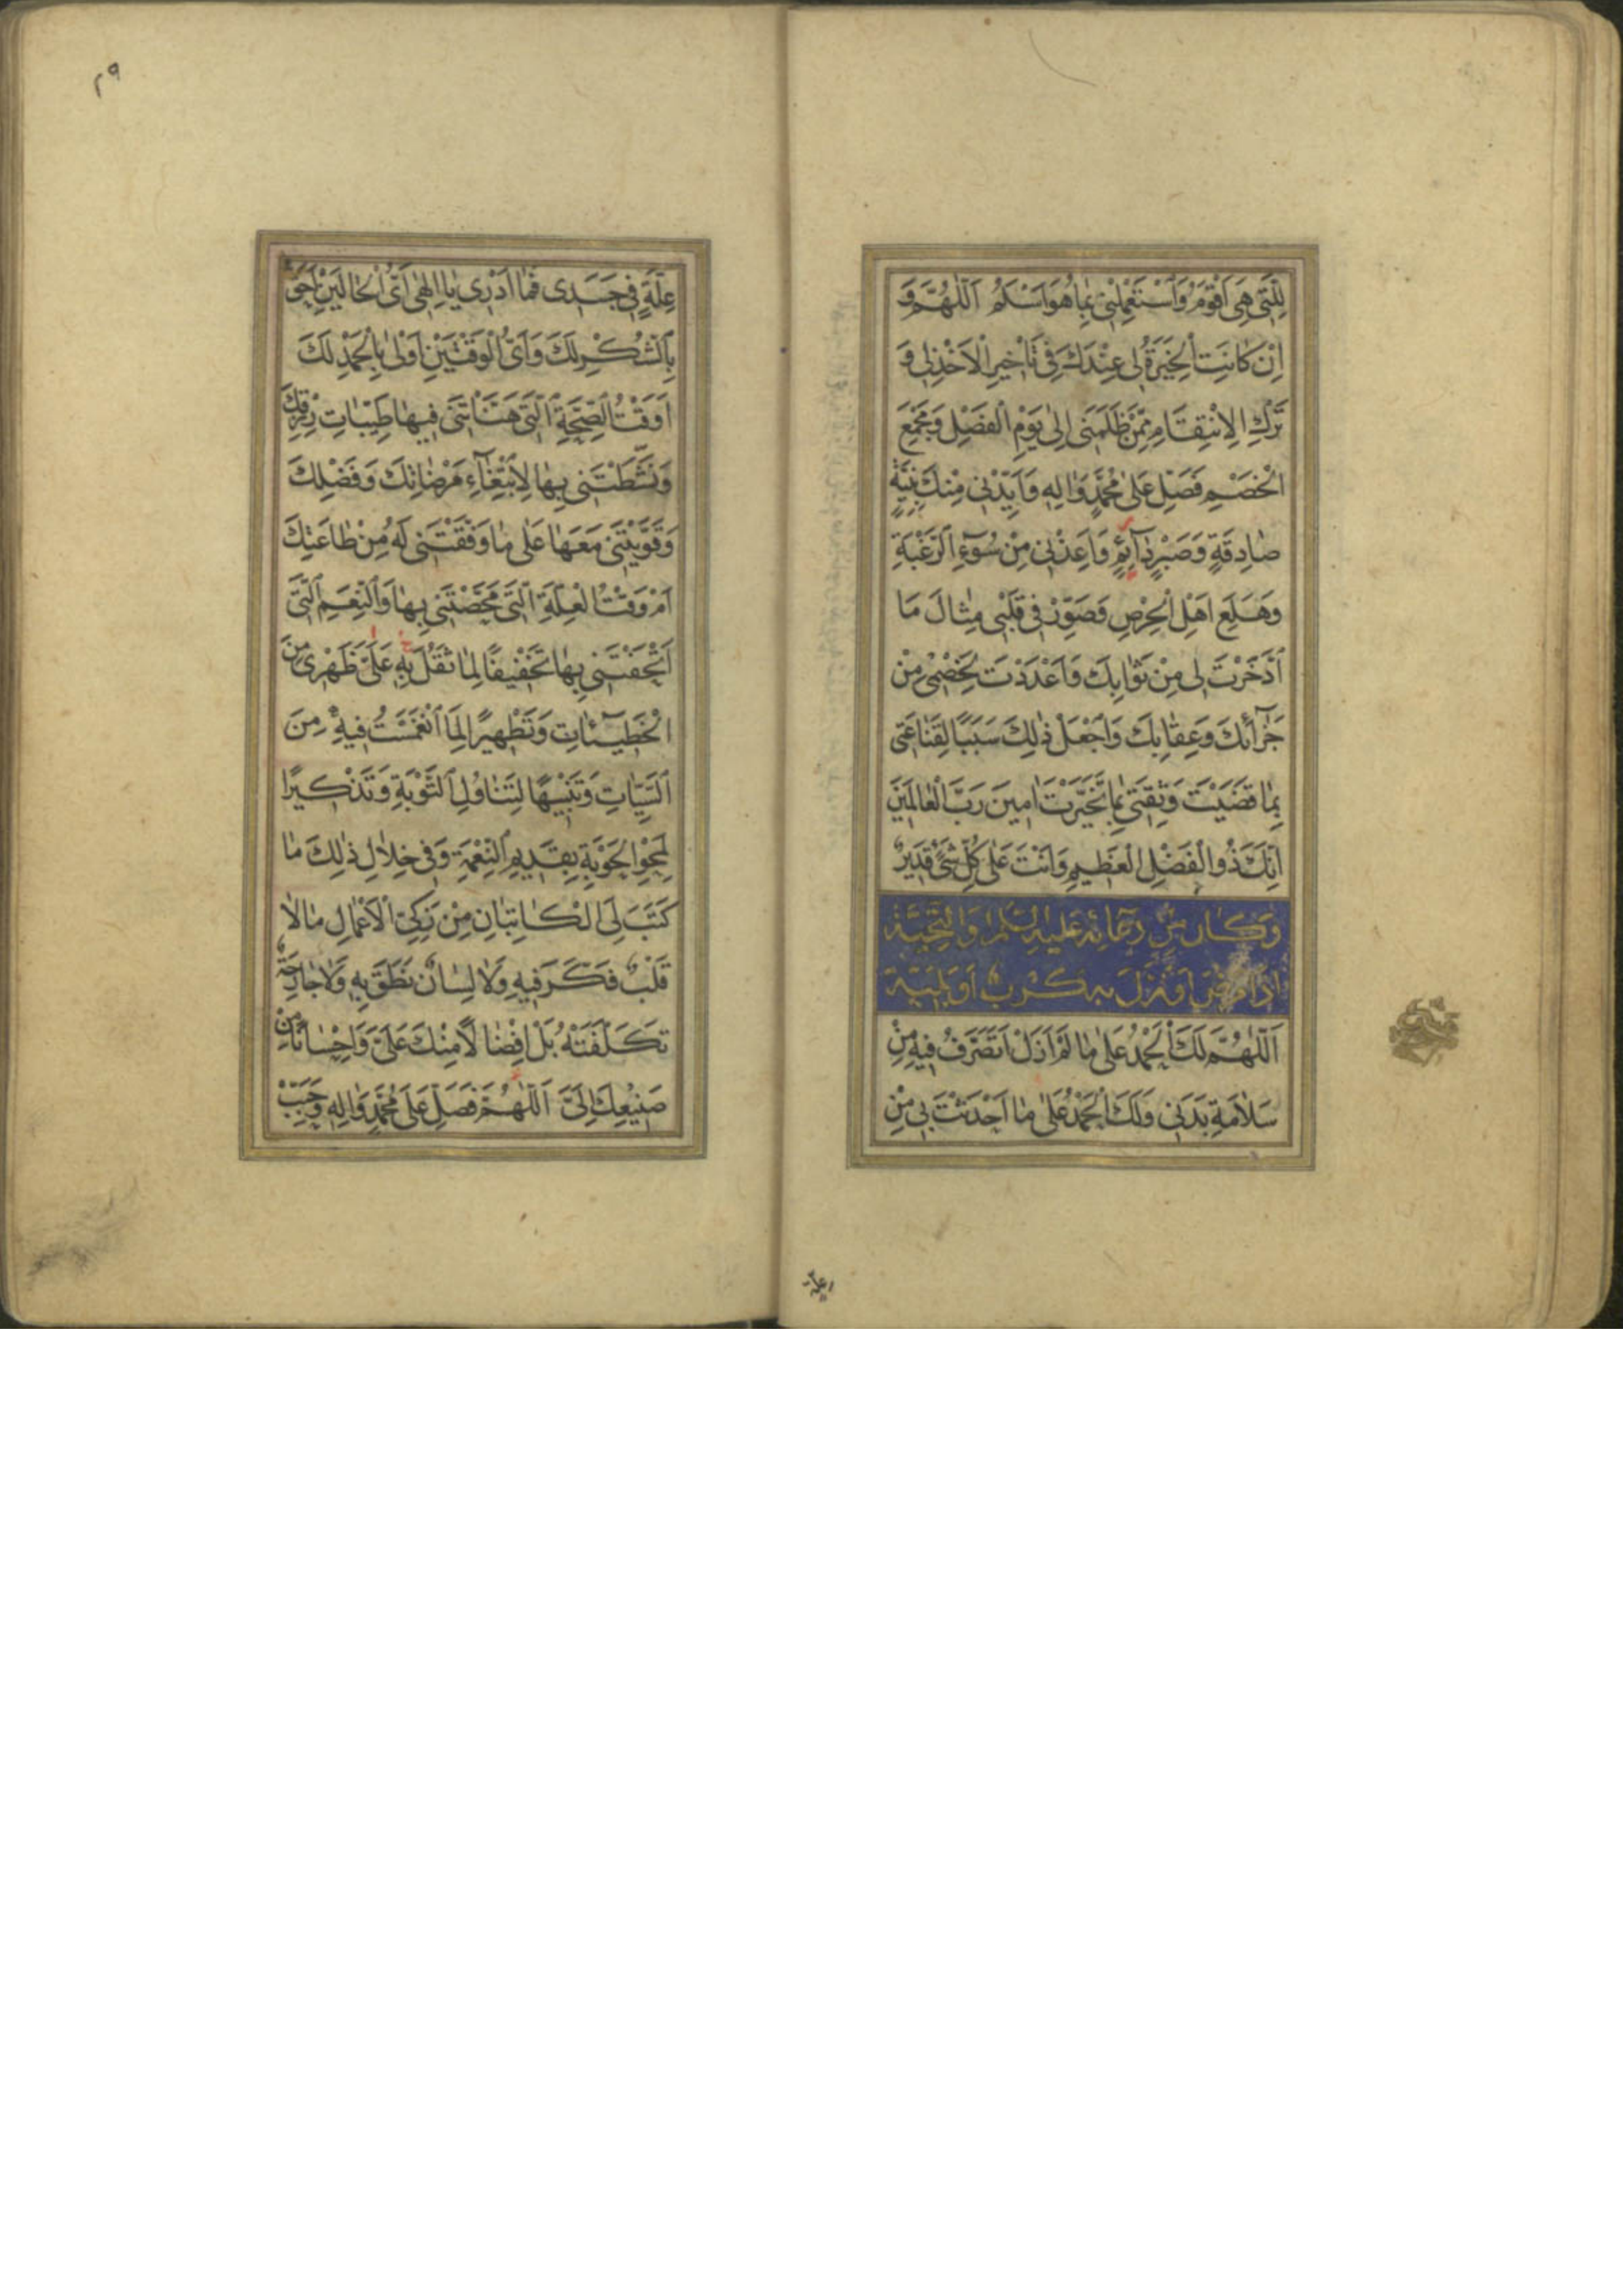 لِلَّتِي هِيَ اَقْوَمُ وَاسْتَعْمِلْنِي بِمَا هُوَ اَسْلَمُ اَللّٰهُمَّ وَ
اِنْ كَانَتِ الْخِيَرَةُ لِي عِنْدَكَ فِي تَأْخِيرِ الْاَخْذِ لِي وَ
تَرْكِ الْاِنْتِقَامِ مِمَّنْ ظَلَمَنِي اِلٰى يَوْمِ الْفَصْلِ وَمَجْمَعِ
الْخَصْمِ فَصَلِّ عَلٰى مُحَمَّدٍ وَاٰلِهِ وَاَيِّدْنِي مِنْكَ بِنِيَّةٍ
صَادِقَةٍ وَصَبْرٍ دَآئِمٍ وَاَعِذْنِي مِنْ سُوٓءِ الرَّغْبَةِ
وَهَلَعِ اَهْلِ الْحِرْصِ وَصَوِّرْ فِي قَلْبِي مِثَالَ مَا
ادَّخَرْتَ لِي مِنْ ثَوَابِكَ وَاَعْدَدْتَ لِخَصْمِي مِنْ
جَزَآئِكَ وَعِقَابِكَ وَاجْعَلْ ذٰلِكَ سَبَبًا لِقَنَاعَتِي
بِمَا قَضَيْتَ وَثِقَتِي بِمَا تَخَيَّرْتَ اٰمِينَ رَبَّ الْعَالَمِينَ
اِنَّكَ ذُو الْفَضْلِ الْعَظِيمِ وَاَنْتَ عَلٰى كُلِّ شَيْءٍ قَدِيرٌ
وَكَانَ مِنْ دُعَائِهِ عَلَيْهِ السَّلَامُ وَالتَّحِيَّةُ
اِذَا مَرِضَ اَوْ نَزَلَ بِهِ كَرْبٌ اَوْ بَلِيَّةٌ
اَللّٰهُمَّ لَكَ الْحَمْدُ عَلٰى مَا لَمْ اَزَلْ اَتَصَرَّفُ فِيهِ مِنْ
سَلَامَةِ بَدَنِي وَلَكَ الْحَمْدُ عَلٰى مَا اَحْدَثْتَ بِي مِنْ
٢٩
عِلَّةٍ فِي جَسَدِي فَمَا اَدْرِي يَا اِلٰهِي اَيُّ الْحَالَيْنِ اَحَقُّ
بِالشُّكْرِ لَكَ وَاَيُّ الْوَقْتَيْنِ اَوْلٰى بِالْحَمْدِ لَكَ
اَوَقْتُ الصِّحَّةِ الَّتِي هَنَّأْتَنِي فِيهَا طَيِّبَاتِ رِزْقِكَ
وَنَشَّطْتَنِي بِهَا لِابْتِغَآءِ مَرْضَاتِكَ وَفَضْلِكَ
وَقَوَّيْتَنِي مَعَهَا عَلٰى مَا وَفَّقْتَنِي لَهُ مِنْ طَاعَتِكَ
اَمْ وَقْتُ الْعِلَّةِ الَّتِي مَحَّصْتَنِي بِهَا وَالنِّعَمِ الَّتِي
اَتْحَفْتَنِي بِهَا تَخْفِيفًا لِمَا ثَقُلَ بِهِ عَلَيَّ ظَهْرِي مِنَ
الْخَطِيـٓئَاتِ وَتَطْهِيرًا لِمَا انْغَمَسْتُ فِيهِ مِنَ
السَّيِّئَاتِ وَتَنْبِيهًا لِتَنَاوُلِ التَّوْبَةِ وَتَذْكِيرًا
لِمَحْوِ الْحَوْبَةِ بِقَدِيمِ النِّعْمَةِ وَفِي خِلَالِ ذٰلِكَ مَا
كَتَبَ لِيَ الْكَاتِبَانِ مِنْ زَكِيِّ الْاَعْمَالِ مَا لَا
قَلْبٌ فَكَّرَ فِيهِ وَلَا لِسَانٌ نَطَقَ بِهِ وَلَا جَارِحَةٌ
تَكَلَّفَتْهُ بَلْ اِفْضَالًا مِنْكَ عَلَيَّ وَاِحْسَانًا مِنْ
صَنِيعِكَ اِلَيَّ اَللّٰهُمَّ فَصَلِّ عَلٰى مُحَمَّدٍ وَاٰلِهِ وَحَبِّبْ